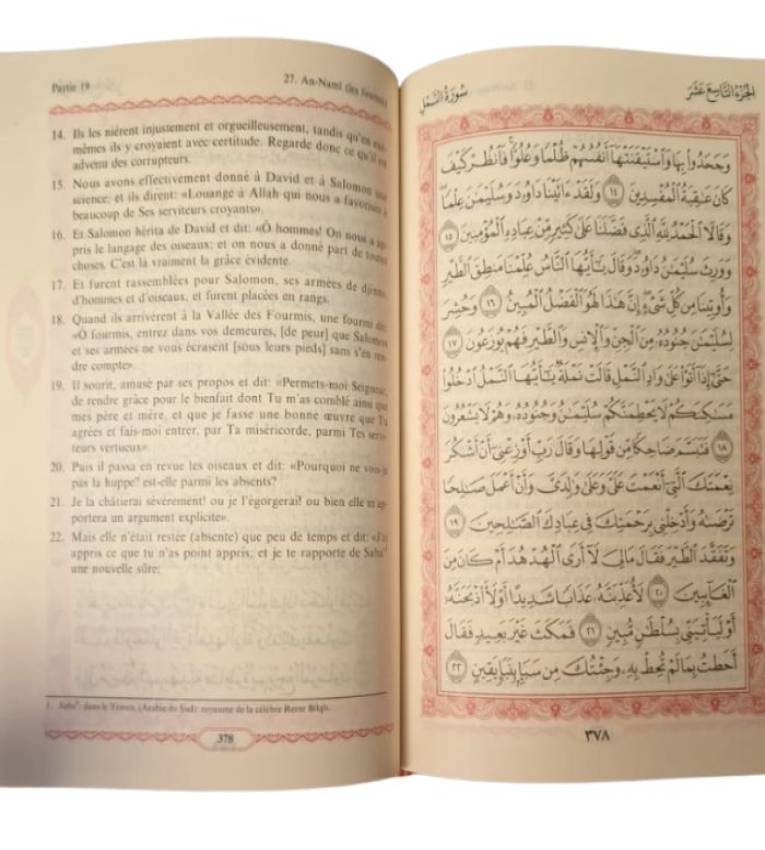 Partie 19
27. An-Naml (les fourmis)
14. Ils les nièrent injustement et orgueilleusement, tandis qu'en
mêmes ils y croyaient avec certitude. Regarde donc ce qu'il
advenu des corrupteurs.
15. Nous avons effectivement donné à David et à Salomon une
science; et ils dirent: «Louange à Allah qui nous a favorisés
beaucoup de Ses serviteurs croyants».
16. Et Salomon hérita de David et dit: «Ô hommes! On nous a
pris le langage des oiseaux; et on nous a donné part de toutes
choses. C'est là vraiment la grâce évidente.
17. Et furent rassemblées pour Salomon, ses armées de djinns,
d'hommes et d'oiseaux, et furent placées en rangs.
18. Quand ils arrivèrent à la Vallée des Fourmis, une fourmi dit:
«Ô fourmis, entrez dans vos demeures, [de peur] que Salomon
et ses armées ne vous écrasent [sous leurs pieds] sans s'en ren-
dre compte».
19. Il sourit, amusé par ses propos et dit: «Permets-moi Seigneur,
de rendre grâce pour le bienfait dont Tu m'as comblé ainsi que
mes père et mère, et que je fasse une bonne œuvre que Tu
agrées et fais-moi entrer, par Ta miséricorde, parmi Tes servi-
teurs vertueux».
20. Puis il passa en revue les oiseaux et dit: «Pourquoi ne vois-je
pas la huppe? est-elle parmi les absents?
21. Je la châtierai sévèrement! ou je l'égorgerai! ou bien elle m'ap-
portera un argument explicite».
22. Mais elle n'était restée (absente) que peu de temps et dit: «J'ai
appris ce que tu n'as point appris; et je te rapporte de Saba'¹
une nouvelle sûre:
1. Saba': dans le Yémen, (Arabie du Sud): royaume de la célèbre Reine Bilqîs.
378
سُورَةُ النَّمْلِ
الجُزْءُ التَّاسِعَ عَشَرَ
وَجَحَدُوا۟ بِهَا وَٱسْتَيْقَنَتْهَآ أَنفُسُهُمْ ظُلْمًا وَعُلُوًّا فَٱنظُرْ كَيْفَ
كَانَ عَٰقِبَةُ ٱلْمُفْسِدِينَ ١٤ وَلَقَدْ ءَاتَيْنَا دَاوُۥدَ وَسُلَيْمَٰنَ عِلْمًا
وَقَالَا ٱلْحَمْدُ لِلَّهِ ٱلَّذِى فَضَّلَنَا عَلَىٰ كَثِيرٍ مِّنْ عِبَادِهِ ٱلْمُؤْمِنِينَ ١٥
وَوَرِثَ سُلَيْمَٰنُ دَاوُۥدَ وَقَالَ يَٰٓأَيُّهَا ٱلنَّاسُ عُلِّمْنَا مَنطِقَ ٱلطَّيْرِ
وَأُوتِينَا مِن كُلِّ شَىْءٍ إِنَّ هَٰذَا لَهُوَ ٱلْفَضْلُ ٱلْمُبِينُ ١٦ وَحُشِرَ
لِسُلَيْمَٰنَ جُنُودُهُۥ مِنَ ٱلْجِنِّ وَٱلْإِنسِ وَٱلطَّيْرِ فَهُمْ يُوزَعُونَ ١٧
حَتَّىٰٓ إِذَآ أَتَوْا۟ عَلَىٰ وَادِ ٱلنَّمْلِ قَالَتْ نَمْلَةٌ يَٰٓأَيُّهَا ٱلنَّمْلُ ٱدْخُلُوا۟
مَسَٰكِنَكُمْ لَا يَحْطِمَنَّكُمْ سُلَيْمَٰنُ وَجُنُودُهُۥ وَهُمْ لَا يَشْعُرُونَ
١٨ فَتَبَسَّمَ ضَاحِكًا مِّن قَوْلِهَا وَقَالَ رَبِّ أَوْزِعْنِىٓ أَنْ أَشْكُرَ
نِعْمَتَكَ ٱلَّتِىٓ أَنْعَمْتَ عَلَىَّ وَعَلَىٰ وَٰلِدَىَّ وَأَنْ أَعْمَلَ صَٰلِحًا
تَرْضَىٰهُ وَأَدْخِلْنِى بِرَحْمَتِكَ فِى عِبَادِكَ ٱلصَّٰلِحِينَ ١٩
وَتَفَقَّدَ ٱلطَّيْرَ فَقَالَ مَالِىَ لَآ أَرَى ٱلْهُدْهُدَ أَمْ كَانَ مِنَ
ٱلْغَآئِبِينَ ٢٠ لَأُعَذِّبَنَّهُۥ عَذَابًا شَدِيدًا أَوْ لَأَا۟ذْبَحَنَّهُۥٓ
أَوْ لَيَأْتِيَنِّى بِسُلْطَٰنٍ مُّبِينٍ ٢١ فَمَكَثَ غَيْرَ بَعِيدٍ فَقَالَ
أَحَطتُ بِمَا لَمْ تُحِطْ بِهِۦ وَجِئْتُكَ مِن سَبَإٍۭ بِنَبَإٍ يَقِينٍ ٢٢
٣٧٨